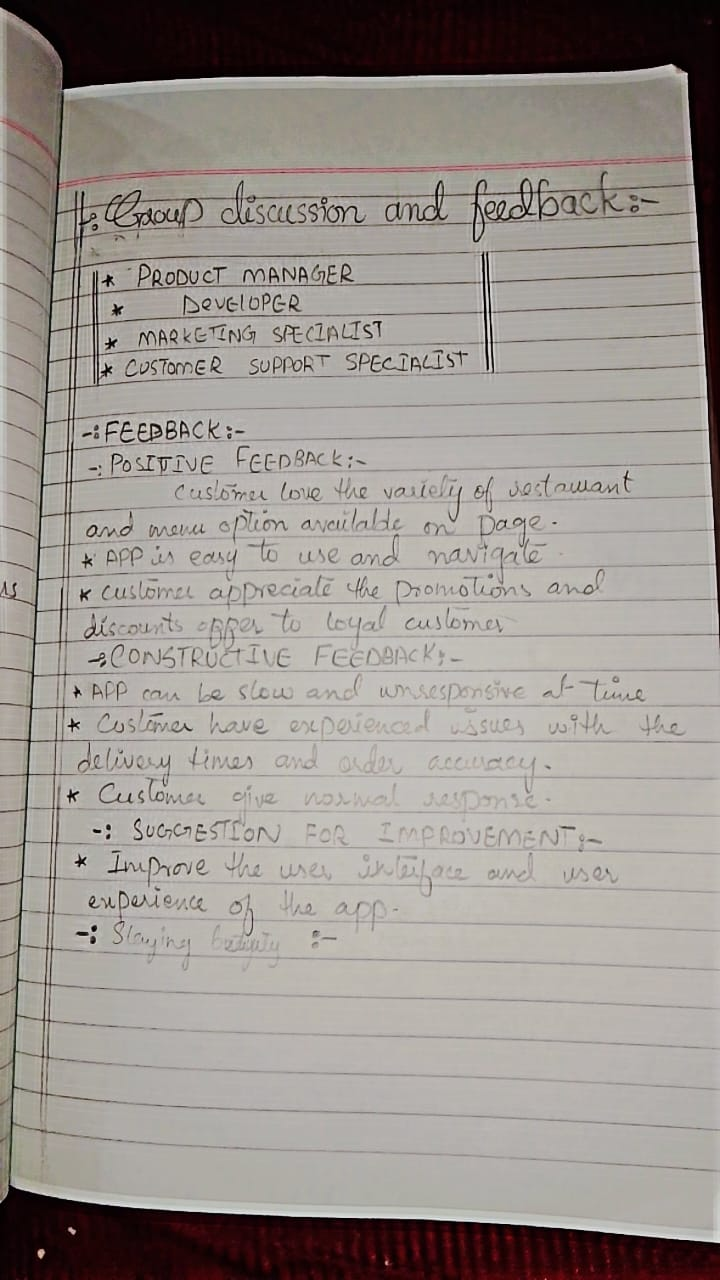 :- Group discussion and feedback:-
* PRODUCT MANAGER
* DEVELOPER
* MARKETING SPECIALIST
* CUSTOMER SUPPORT SPECIALIST
-: FEEDBACK:-
-: POSITIVE FEEDBACK:-
Customer love the variety of restaurant
and menu option available on Page.
* APP is easy to use and navigate.
* Customer appreciate the promotions and
discounts offer to loyal customer
-: CONSTRUCTIVE FEEDBACK:-
* APP can be slow and unresponsive at time
* Customer have experienced issues with the
delivery times and order accuracy.
* Customer give normal response.
-: SUGGESTION FOR IMPROVEMENT:-
* Improve the user interface and user
experience of the app-
-: :-
as